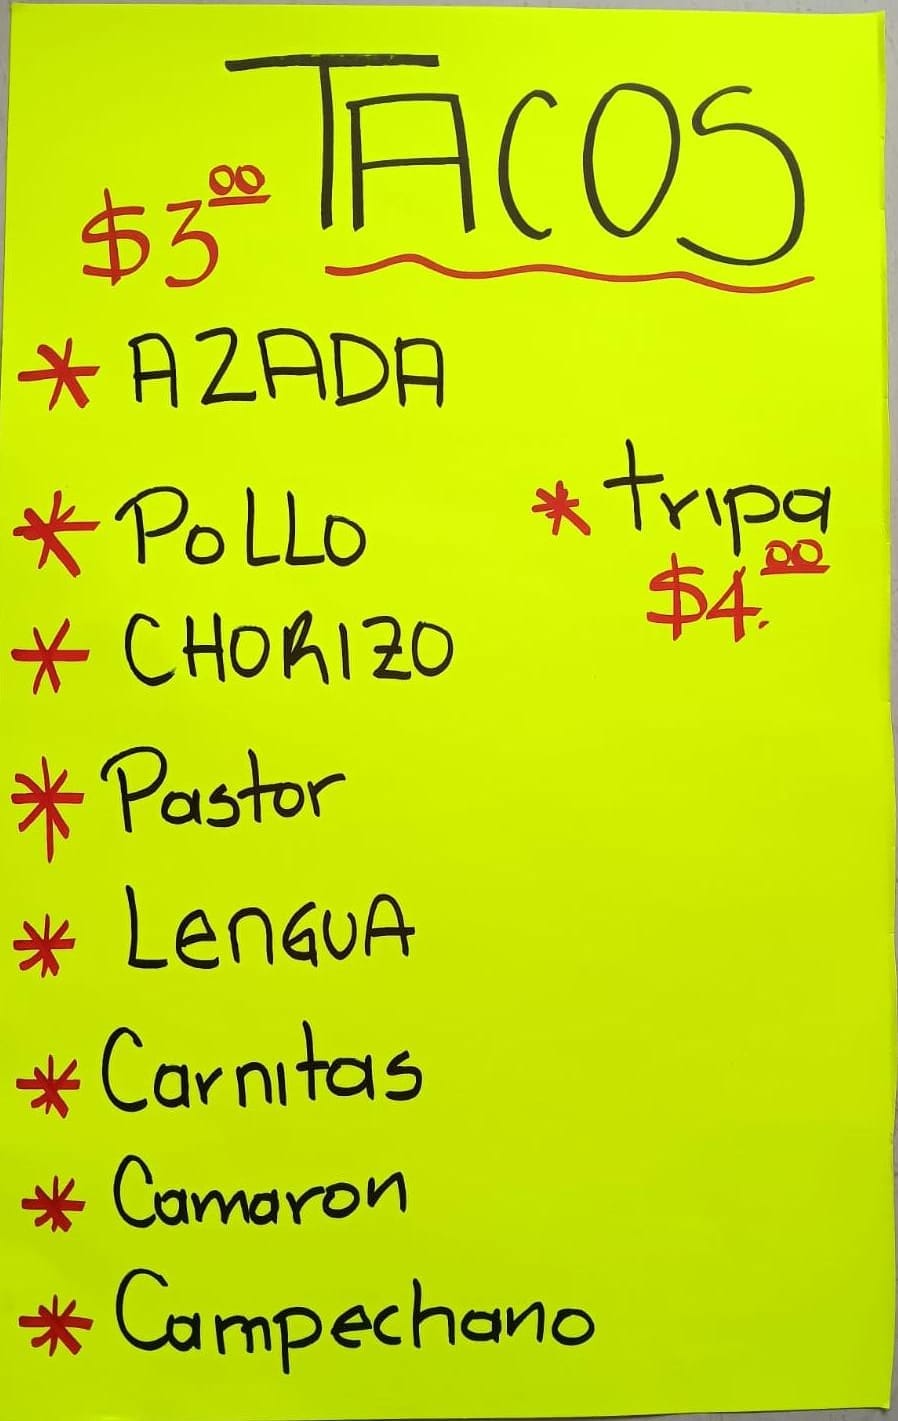 TACOS
$3.00
* AZADA
* POLLO
* CHORIZO
* Pastor
* LenGUA
* Carnitas
* Camaron
* Campechano
* tripa
$4.00